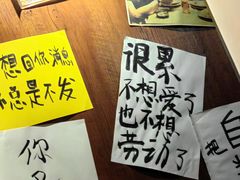 想回你消息
总是不发
很累
不想爱了
也不想
劳动了
你
自
把